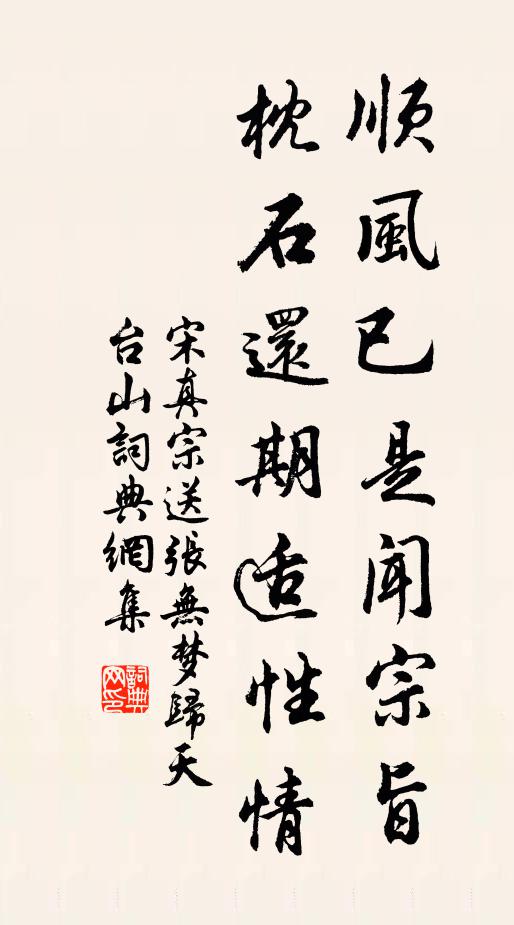 順風已是聞宗旨
枕石還期适性情
宋真宗送張無梦歸天
台山詞典網集
詞典
网印